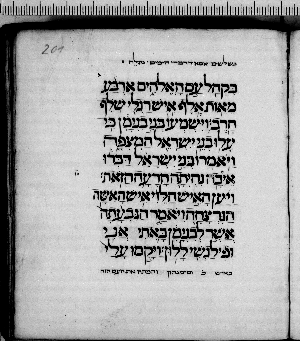 בקהל עם האלהים ארבע
מאות אלף איש רגלי שלף
חרב וישמעו בני בנימן כי
עלו בני ישראל המצפה
ויאמרו בני ישראל דברו
איכה נהיתה הרעה הזאת
ויען האיש הלוי איש האשה
הנרצחה ויאמר הגבעתה
אשר לבנימן באתי אני
ופילגשי ללון ויקמו עלי